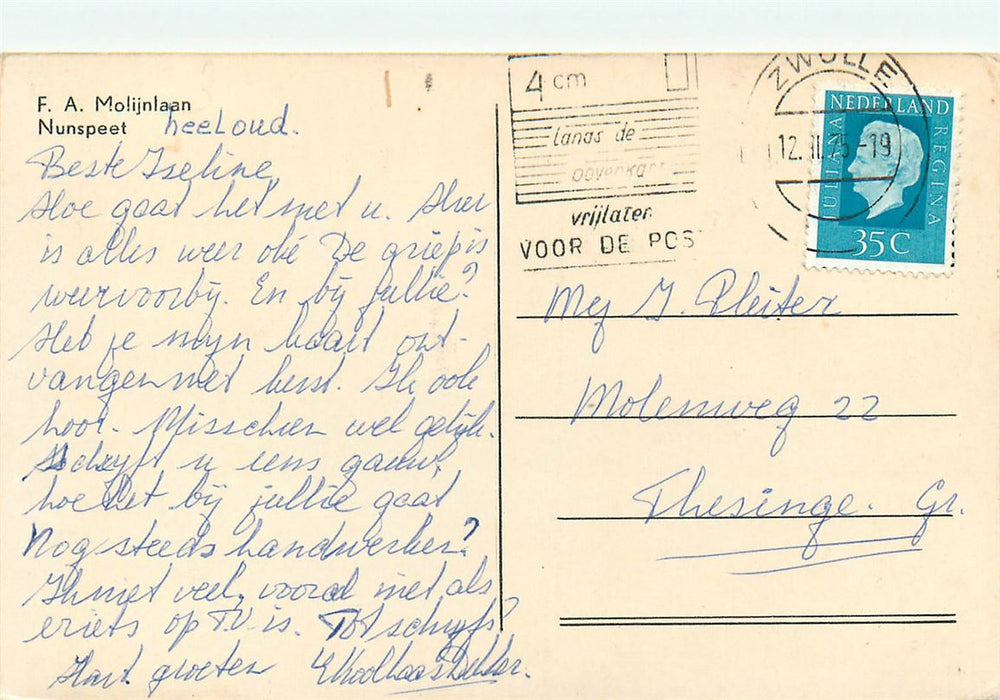 F. A. Molijnlaan
Nunspeet heel oud.
Beste Iseline
Hoe gaat het met u. Hier
is alles weer oké De griep is
weer voorbij. En bij jullie?
Heb je mijn kaart ont-
vangen met kerst. Ik ook
hoor. Misschien wel gelijk.
Schrijft u eens gauw,
hoe het bij jullie gaat
Nog steeds handwerken?
Ik niet veel, vooral niet als
er iets op TV is. Tot schrijfs?
Hart groeten
4 cm
langs de
bovenkant
vrijlaten
VOOR DE POS
ZWOLLE
12. II. 75 -19
NEDERLAND
JULIANA REGINA
35 C
Mej J. Pleiter
Molenweg 22
Thesinge. Gr.